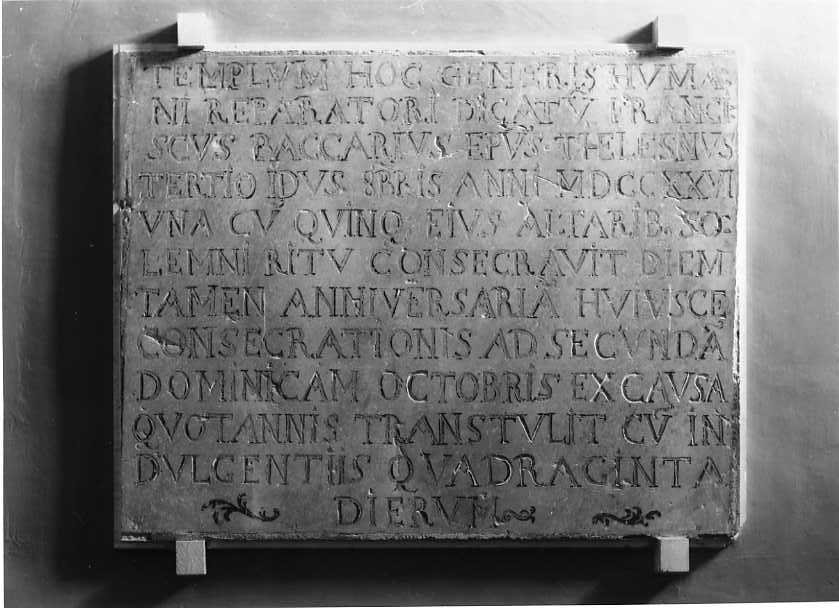 TEMPLVM HOC GENERIS HVMA-
NI REPARATORI DICATV̄ FRANCI-
SCVS BACCARIVS EPVS · THELESNVS
TERTIO IDVS 8BRIS ANNI MDCCXXVI
VNA CV̄ QVINQ. EIVS ALTARIB. SO-
LEMNI RITV CONSECRAVIT DIEM
TAMEN ANNIVERSARIĀ HVIVSCE
CONSECRATIONIS AD SECVNDĀ
DOMINICAM OCTOBRIS EX CAVSA
QVOTANNIS TRANSTVLIT CV̄ IN
DVLGENTIIS QVADRAGINTA
DIERVM